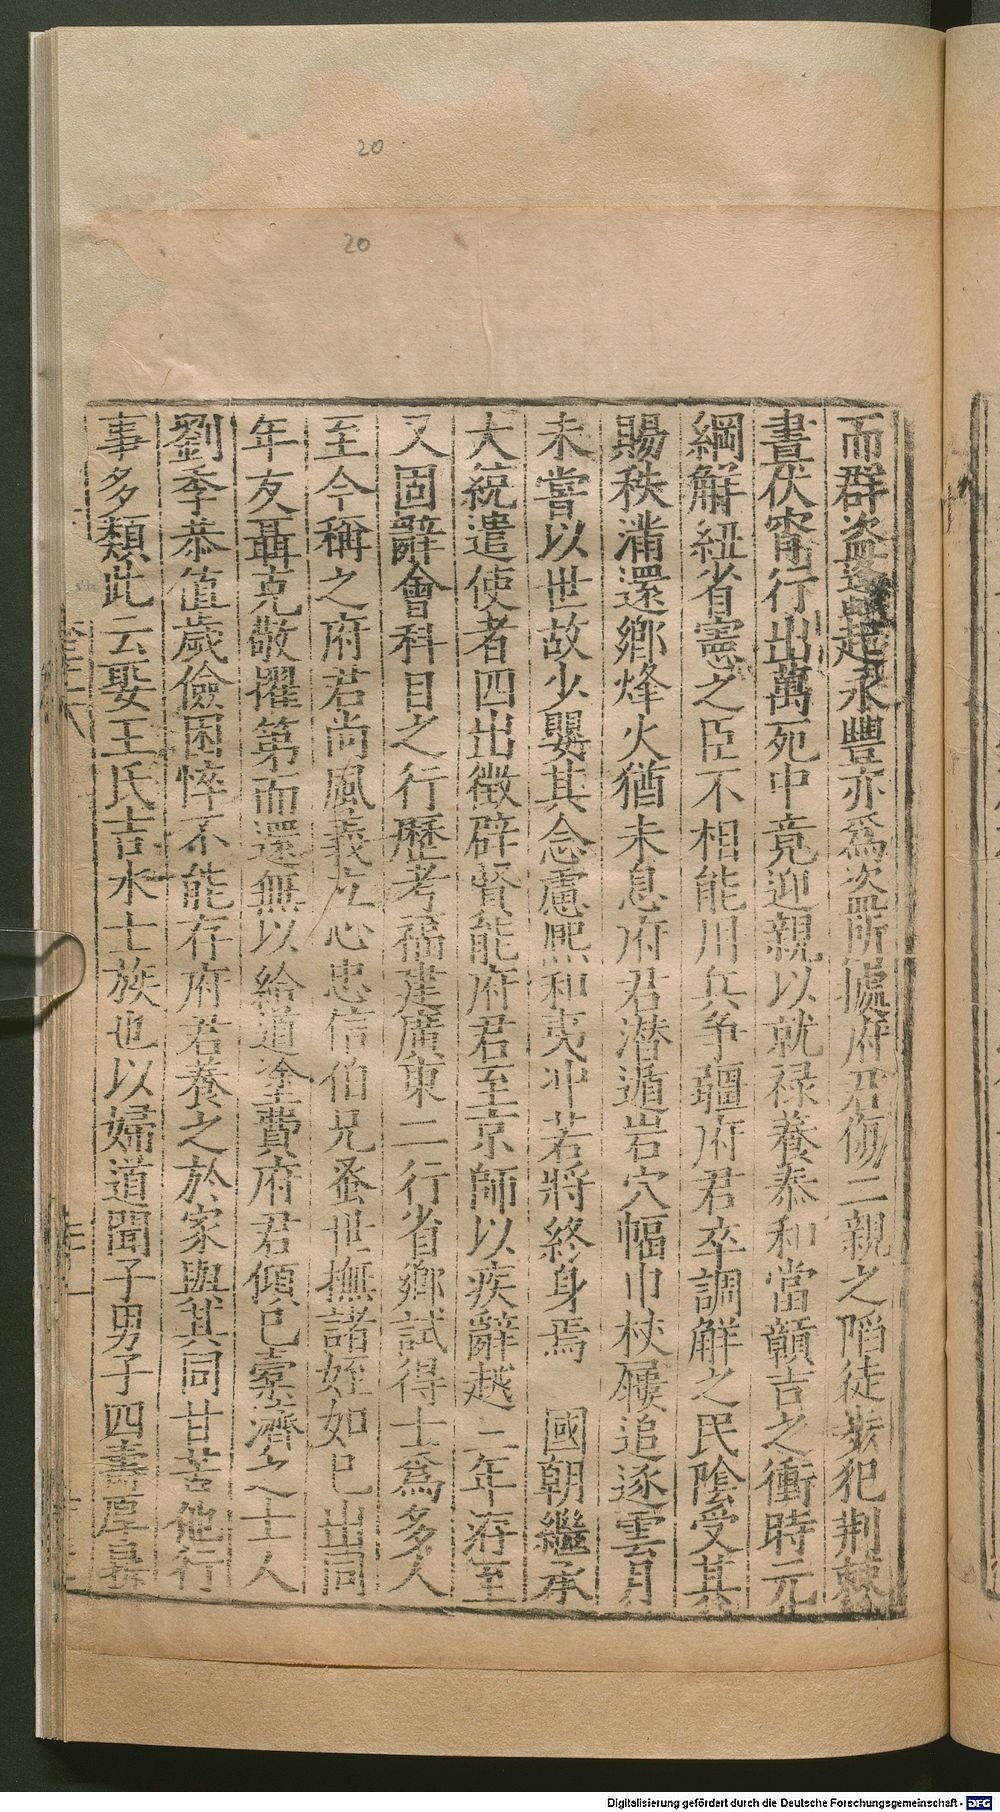 20
20
而群盗逢起永豐亦爲盗所據府君傷二親之陷徒步犯荆棘
晝伏宵行出萬死中竟迎親以就禄養泰和當贛吉之衝時元
綱解紐省憲之臣不相能川兵争疆府君卒調解之民陰受其
賜秩滿還鄉烽火猶未息府君潜遁岩穴幅巾杖屨追逐雲月
未嘗以世故少嬰其念慮熈和夷冲若將終身焉　國朝繼承
大統遣使者四出徵辟賢能府君至京師以疾辭越二年洊至
又固辭會科目之行歷考福建廣東二行省鄉試得士爲多人
至今稱之府君尚風義立心忠信伯兄蚤世撫諸姪如已出同
年友聶克敬擢第而還無以給道塗費府君傾已槖濟之士人
劉季恭值歲儉困悴不能存府君養之於家與其同甘苦他行
事多類此云娶王氏吉水士族也以婦道聞子男子四壽厚
Digitalisierung gefördert durch die Deutsche Forschungsgemeinschaft - DFG